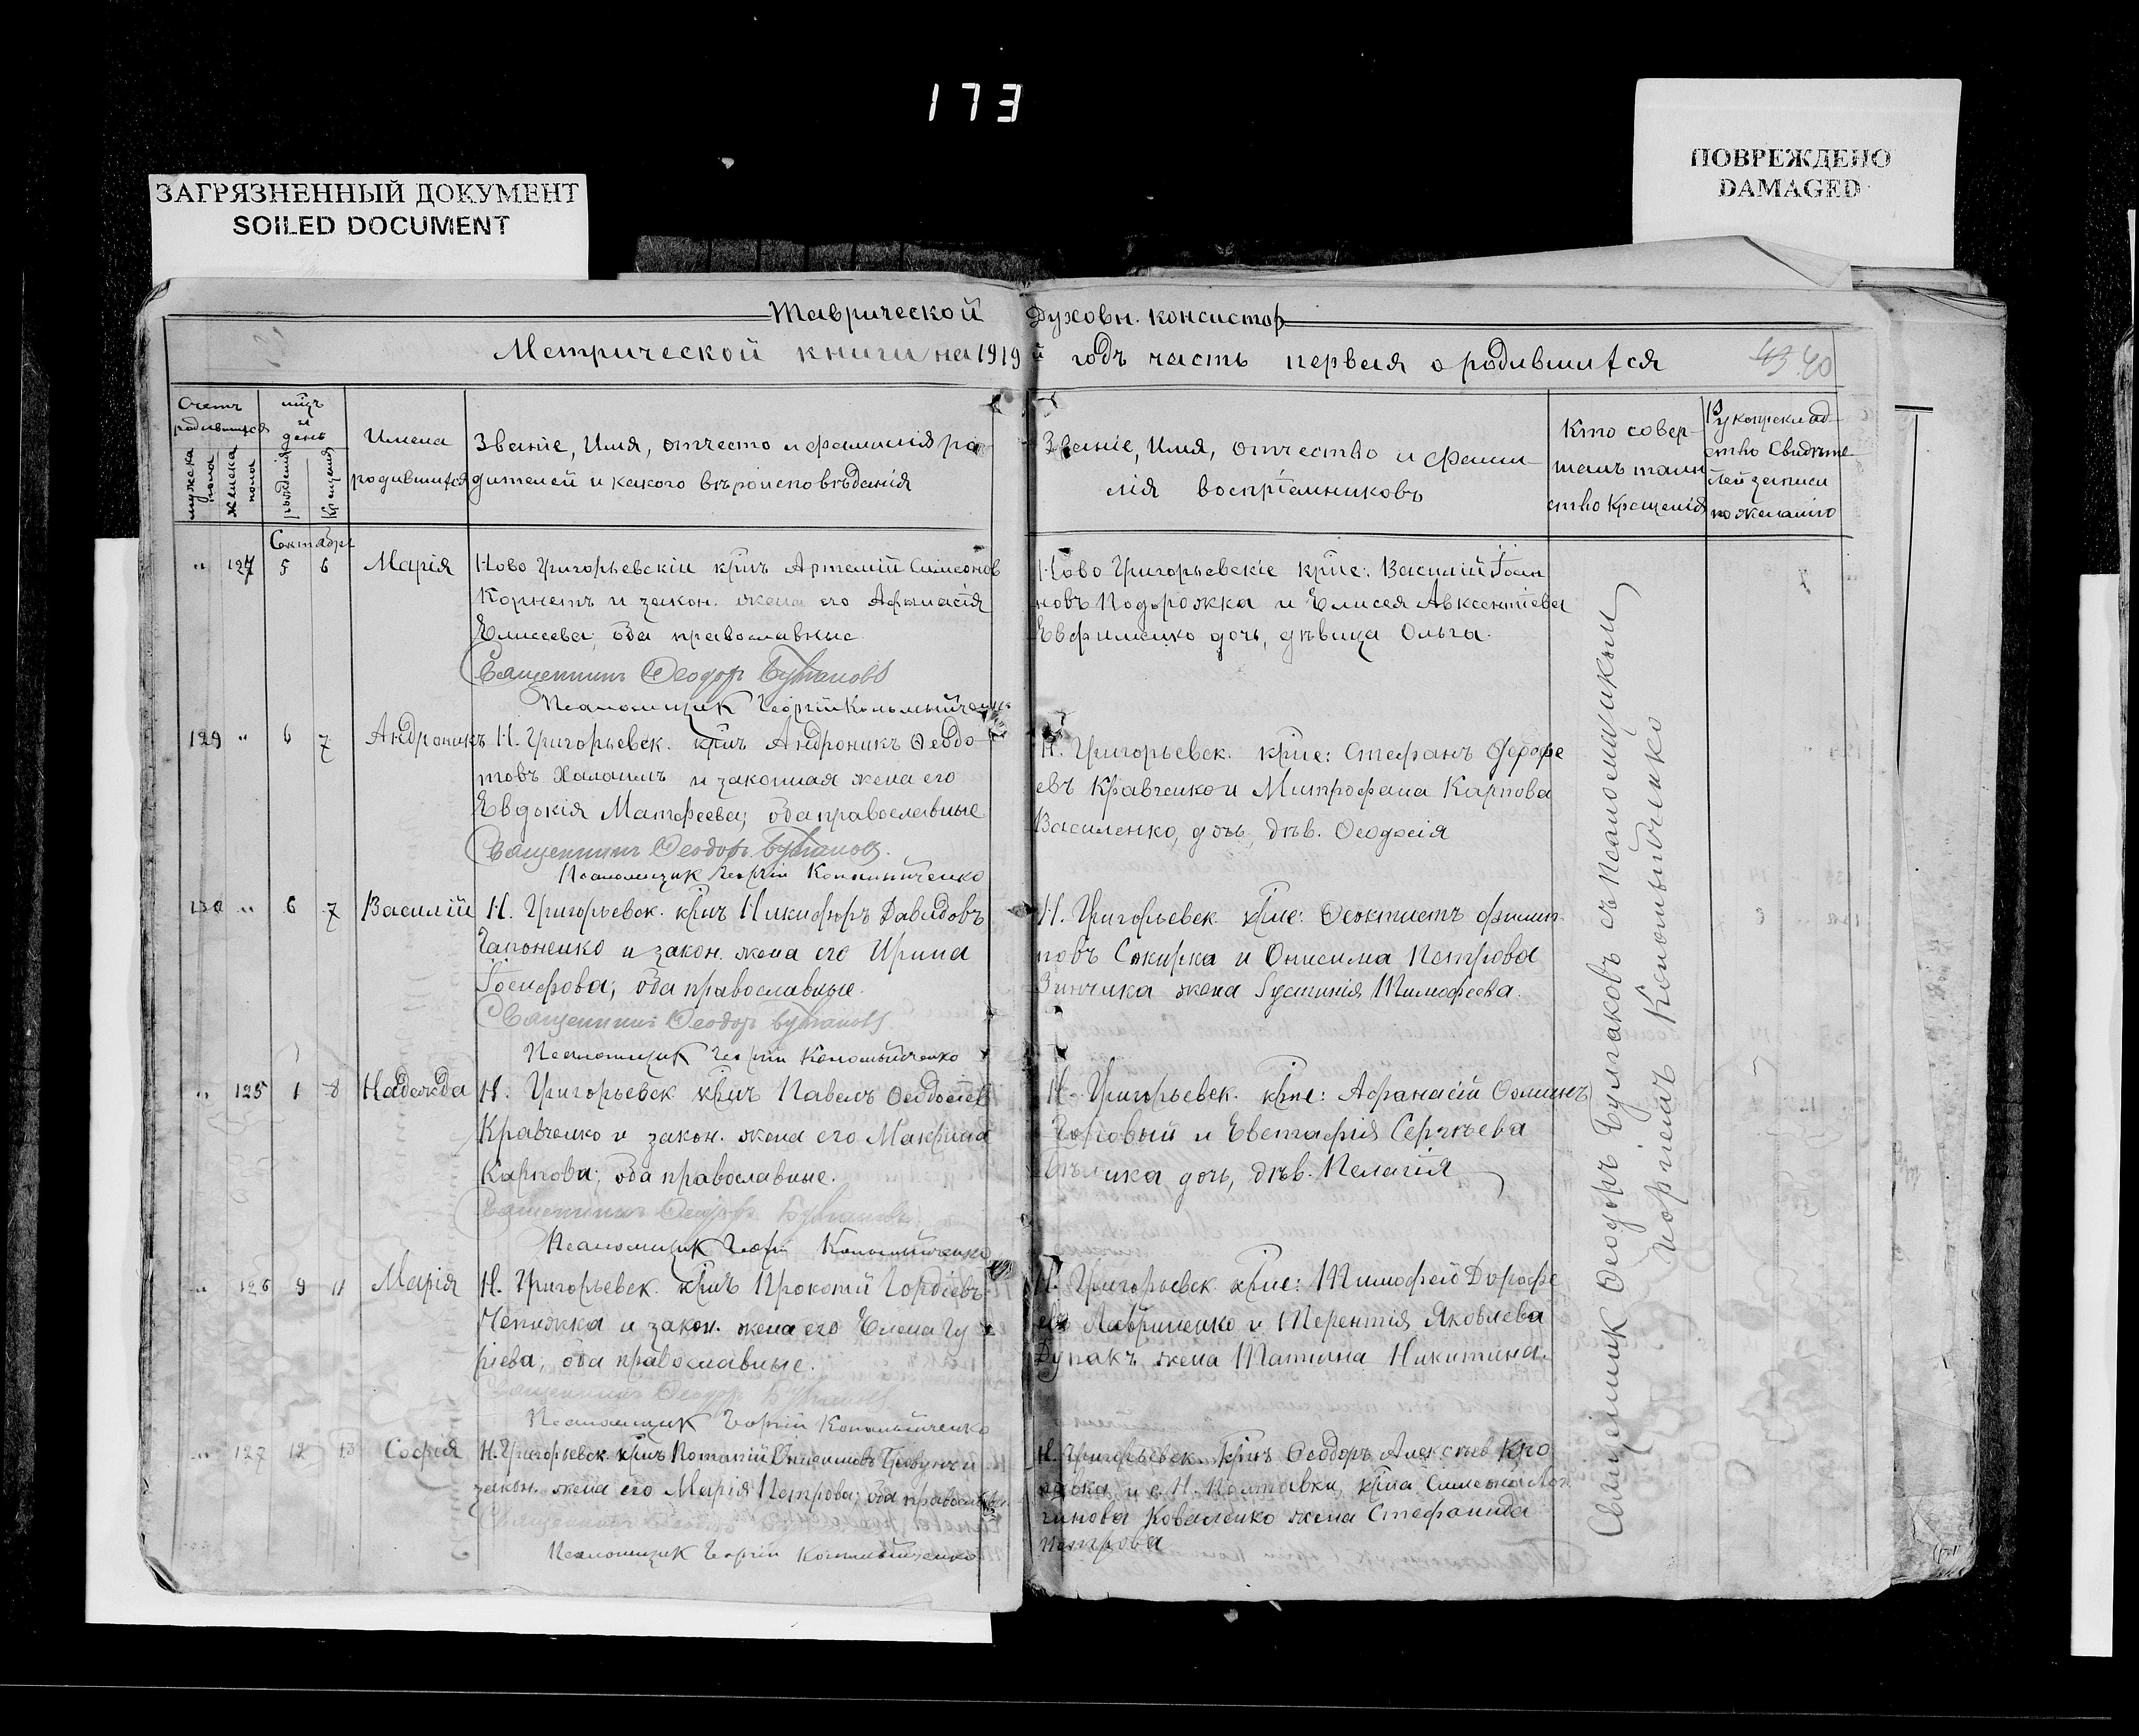 173
ЗАГРЯЗНЕННЫЙ ДОКУМЕНТ
SOILED DOCUMENT
ПОВРЕЖДЕНО
DAMAGED
Таврической Духовн. консистор
Метрической книги на 1919 й годъ часть первая о родившихся
43 40
Счетъ родившихся
мужска пола
женска пола
мцъ и день
рожденія
крещенія
Имена родившихся
Званіе, Имя, отчество и фамилія ро
дителей и какого вѣроисповѣданія
Званіе, Имя, отчество и фами-
лія воспріемниковъ
Кто совер-
шалъ таин
ство крещенія
Рукоприклад-
ство Свидѣте-
лей записи
по желанію
Октября
" 124 5 6 Марія
Ново Григорьевскіи крнъ Артемій Симеонов
Корнетъ и закон. жена его Афанасія
Елисеева; оба православные
Священникъ Ѳеодоръ Булгаковъ
Псаломщик Георгій Коломыйченко
Ново Григорьевскіе крне: Василій Іоан
новъ Подорожка и Елисея Авксентіева
Евфименко дочь, дѣвица Ольга.
129 " 6 7 Андроникъ
Н. Григорьевск. крнъ Андроникъ Ѳеодо
товъ Халаимъ и законная жена его
Евдокія Матфеева; оба православные
Священникъ Ѳеодоръ Булгаковъ.
Псаломщик Георгій Коломыйченко
Н. Григорьевск. крне: Стефанъ
евъ Кравченко и Митрофана Карпова
Василенко, дочь, дѣв. Ѳеодосія
130 " 6 7 Василій
Н. Григорьевск. крнъ Никифоръ Давидовъ
Гапоненко и закон. жена его Ирина
Іосифова; оба православные.
Священникъ Ѳеодоръ Булгаковъ
Псаломщик Георгій Коломыйченко
Н. Григорьевск крне: Ѳеоктистъ Филип
повъ Сокирка и Онисима Петрова
Зинчика жена Іустинія Тимофеева.
" 125 1 8 Надежда
Н. Григорьевск крнъ Павелъ Ѳеодосіев
Кравченко и закон. жена его Макрина
Карпова; оба православные.
Священникъ Ѳеодоръ Булгаковъ
Псаломщик Георгій Коломыйченко
Н. Григорьевск. крне: Афанасій Ѳоминъ
и Евстафія Сергѣева
дочь, дѣв. Пелагія
" 126 9 11 Марія
Н. Григорьевск. крнъ Прокопій Гордіевъ
Чепижка и закон. жена его Елена Гу
ріева; оба православные.
Священникъ Ѳеодоръ Булгаковъ
Псаломщик Георгій Коломыйченко
Н. Григорьевск крне: Тимофей Дорофе
евъ Лавриненко и Терентія Яковлева
Дупакъ жена Татіана Никитина.
" 127 12 13 Софія
Н. Григорьевск. крнъ Потапій Онисимовъ
закон. жена его Марія Петрова; оба православн
Псаломщик Георгій Коломыйченко
Н. Григорьевск. крнъ Ѳеодоръ Алексѣев
и с. Н. Полтавки, крна Симеона Лон
гинова Коваленко жена Стефанида
Петрова
Священник Ѳеодоръ Булгаковъ съ псаломщикомъ
Георгіемъ Коломыйченко